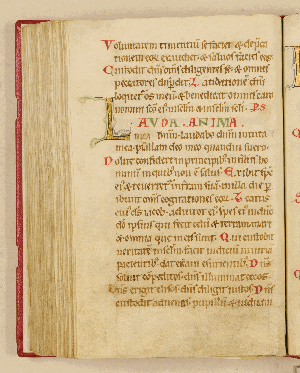 Voluntatem timentiu se faciet & depca
tione eor exaudiet & saluos faciet eos
Custodit dns oms diligentes se & omnes
peccatores disperdet Laudatione dni
loquet os meu & benedicat omnis caro
nomini sco ei in sclm & in sclm scli. PS
LAUDA . ANIMA .
mea dnm laudabo dnm in uita
mea psallam deo meo quandiu fuero
Nolite confidere in principib in filiis ho
minu in quib non e salus Exibit sps
ei & reuertet in terram sua in illa die p
ibunt oms cogitationes eor Beatus
cui ds iacob adiutor ei spes ei in dno
do ipsius qui fecit celu & terram mare
& omnia que in eis sunt Qui custodit
ueritate in sclm facit iudiciu iniuria
patientib dat escam esurientib Dns
soluit copeditos dns illuminat cecos
Dns erigit elisos dns diligit iustos Dns
custodit aduenas pupillu & uiduam